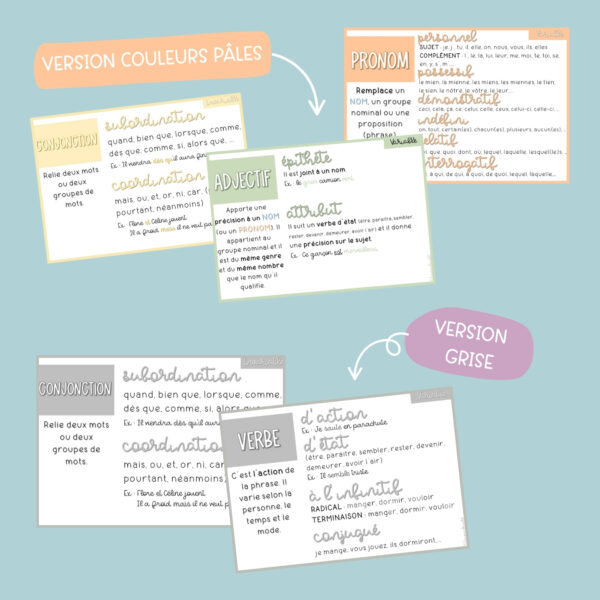 VERSION COULEURS PÂLES
PRONOM
Remplace un
NOM, un groupe
nominal ou une
proposition
(phrase).
personnel
SUJET : je, j', tu, il, elle, on, nous, vous, ils, elles
COMPLÉMENT : l', le, la, lui, leur, me, moi, te, toi, se,
en, y, s', m'...
possessif
le mien, la mienne, les miens, les miennes, le tien,
le sien, le nôtre, le vôtre, le leur...
démonstratif
ceci, cela, ça, ce, celui, celle, ceux, celui-ci, celle-ci...
indéfini
on, tout, certain(es), chacun(es), plusieurs, aucun(es)...
relatif
qui, que, quoi, dont, où, lequel, laquelle, lesquel(le)s...
interrogatif
à qui, de qui, à quoi, de quoi, lequel, laquelle...
CONJONCTION
Invariable
Relie deux mots
ou deux
groupes de
mots.
subordination
quand, bien que, lorsque, comme,
dès que, comme, si, alors que, ...
Ex : Il viendra dès qu'il aura fini
coordination
mais, ou, et, or, ni, car,
pourtant, néanmoins)
Ex : Flore et Céline jouent
Il a froid mais il ne veut pa
ADJECTIF
Variable
Apporte une
précision à un NOM
(ou un PRONOM). Il
appartient au
groupe nominal et il
est du même genre
et du même nombre
que le nom qu'il
qualifie.
épithète
Il est joint à un nom.
Ex : le gros camion vert.
attribut
Il suit un verbe d'état (être, paraitre, sembler,
rester, devenir, demeurer, avoir l'air) et il donne
une précision sur le sujet.
Ex : Ce garçon est merveilleux.
VERSION
GRISE
CONJONCTION
Invariable
Relie deux mots
ou deux
groupes de
mots.
subordination
quand, bien que, lorsque, comme,
dès que, comme, si, alors que
Ex : Il viendra dès qu'il aura
coordination
mais, ou, et, or, ni, car
pourtant, néanmoins,
Ex : Flore et Céline jouent
Il a froid mais il ne veut
VERBE
Variable
C'est l'action de
la phrase. Il
varie selon la
personne, le
temps et le
mode.
d'action
Ex : Je saute en parachute
d'état
(être, paraitre, sembler, rester, devenir,
demeurer, avoir l'air)
Ex : Il semble triste
à l'infinitif
RADICAL : manger, dormir, vouloir
TERMINAISON : manger, dormir, vouloir
conjugué
je mange, vous jouez, ils dormiront...